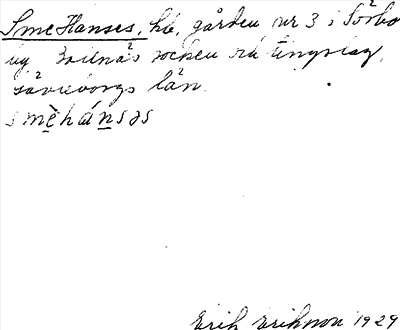 Smehanses, hb, gården nr 3 i Sörbo
by Bollnäs socken och tingslag,
Gävleborgs län.
smèhánsəs
Erik Eriksson 1929